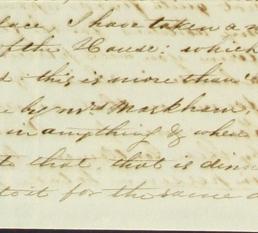 I have taken a
of the House: which
this is more than
by Mrs Markham
in anything & when
that that is dinn
for the same